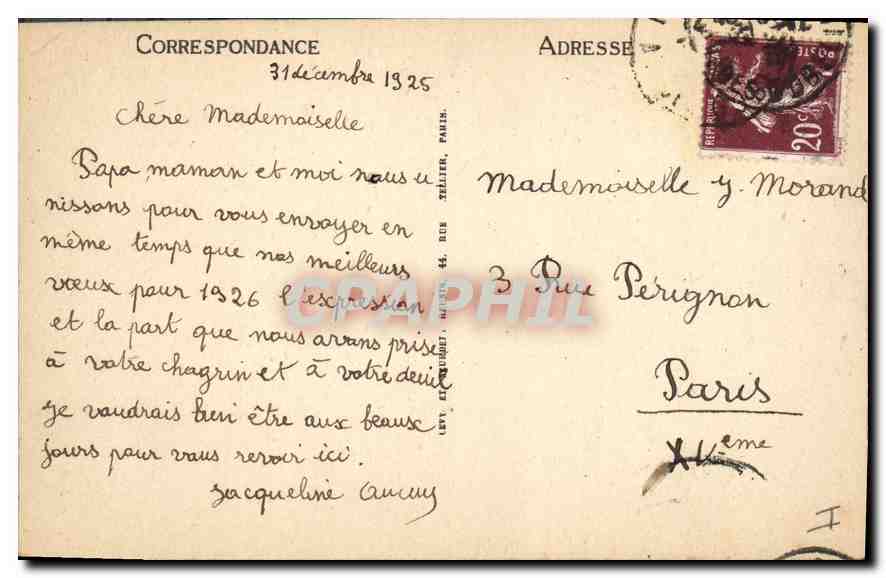 CORRESPONDANCE
31 décembre 1925
Chére Mademoiselle
Papa, maman et moi nous u
nissons pour vous envoyer en
même temps que nos meilleurs
vœux pour 1926 l'expression
et la part que nous avons prise
à votre chagrin et à votre deuil
je voudrais bien être aux beaux
jours pour vous revoir ici.
Jacqueline
LEVY ET NEURDEIN RÉUNIS, 44, RUE TELLIER, PARIS.
ADRESSE
REPUBLIQUE
POSTES
20c
Mademoiselle y. Morand
3 Rue Pérignon
Paris
XVeme
I
GRAPHIL